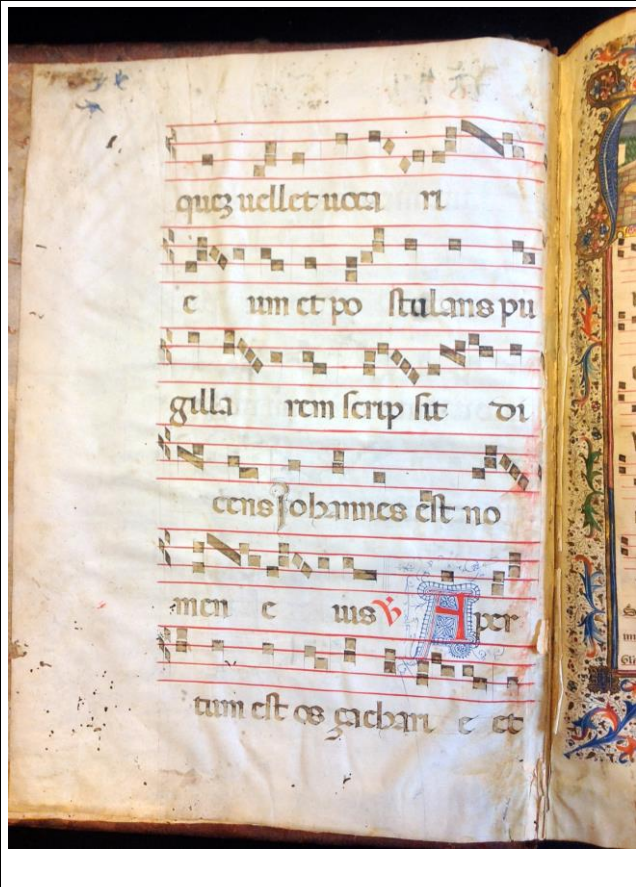 quez uellet uocari
eum et postulans pu
gillarem scripsit di
cens Johannes est no
men eius ℣ Aper
tum est os zacharie et